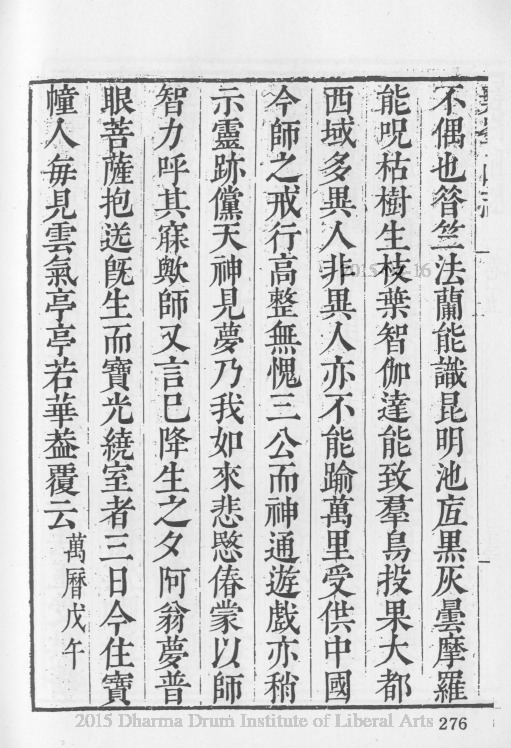 不偶也昝竺法蘭能識昆明池㡳黒灰曇摩羅
能呪枯樹生枝葉智伽達能致羣鳥投果大都
西域多異人非異人亦不能踰萬里受供中國
今師之戒行高整無愧三公而神通遊戲亦稍
示靈跡儻天神見夢乃我如來悲愍偆蒙以師
智力呼其寐歟師又言巳降生之夕阿翁夢普
眼菩薩抱送旣生而寶光繞室者三日今住寶
幢人毎見雲氣亭亭若華葢覆云
萬曆戊午
2015 Dharma Drum Institute of Liberal Arts
276